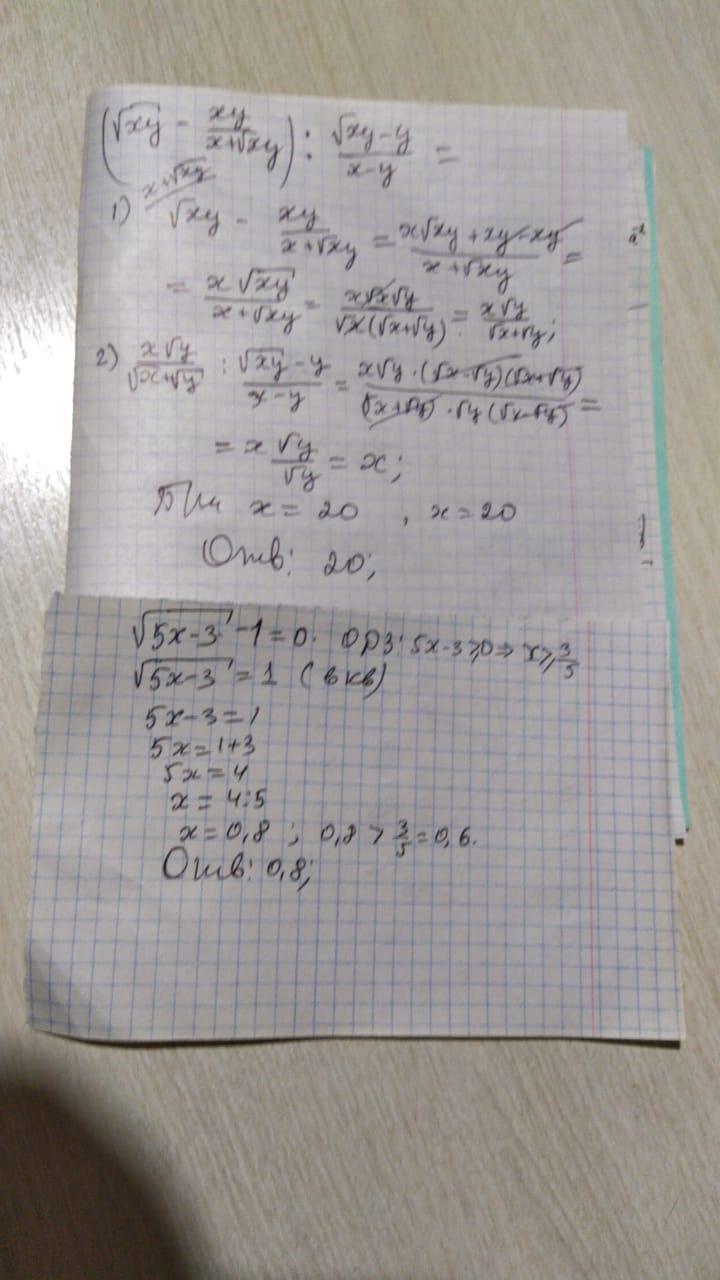 (√xy - xy/(x+√xy)) : (√xy-y)/(x-y) =
x+√xy
1) √xy - xy/(x+√xy) = (x√xy+xy-xy)/(x+√xy) =
= x√xy/(x+√xy) = x√x√y/(√x(√x+√y)) = x√y/(√x+√y);
2) x√y/(√x+√y) : (√xy-y)/(x-y) = x√y·(√x-√y)(√x+√y)/((√x+√y)·√y(√x-√y)) =
= x √y/√y = x;
При x = 20 , x = 20
Отв: 20;
√5x-3 -1=0. ОДЗ: 5x-3≥0 ⇒ x≥3/5
√5x-3 = 1 (в кв)
5x-3=1
5x=1+3
5x=4
x = 4:5
x=0,8 ; 0,8 > 3/5 = 0,6.
Отв: 0,8;